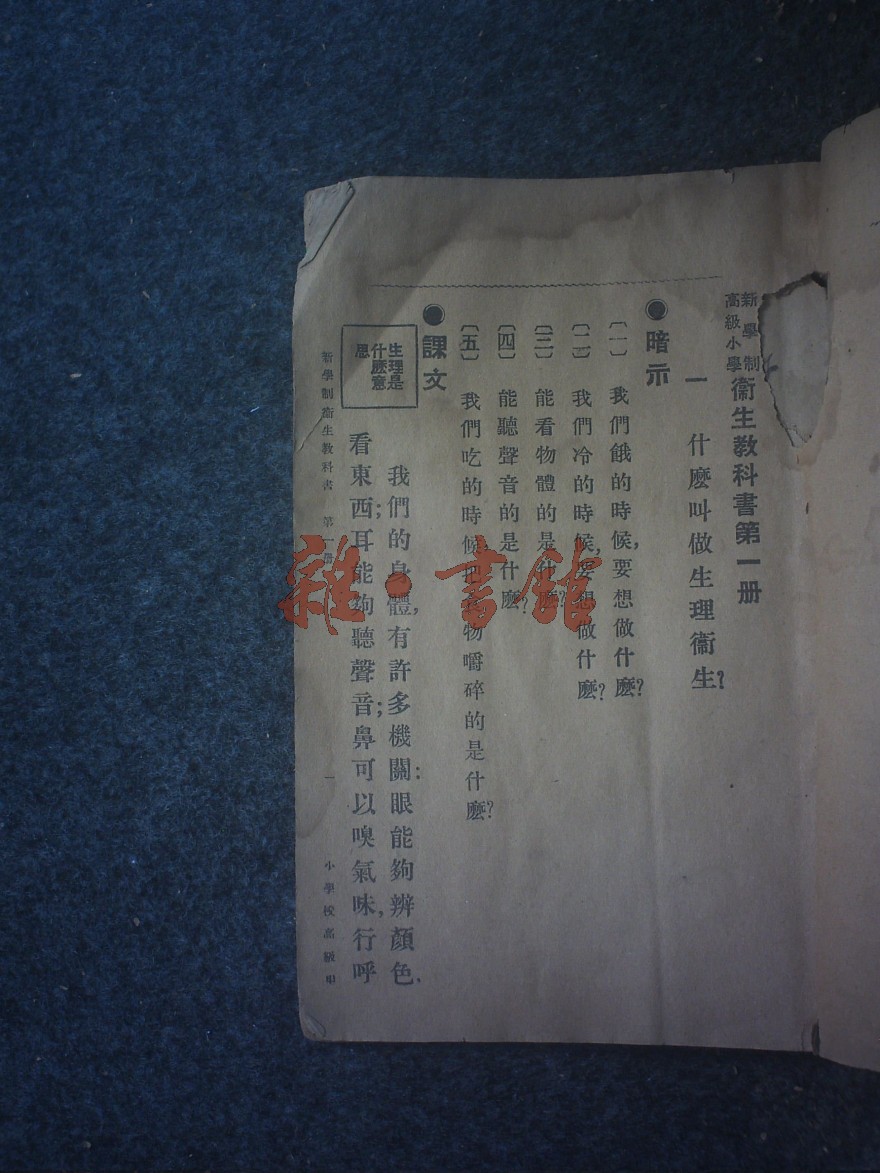 新學制
高級小學
衞生教科書第一册
一 什麼叫做生理衞生?
●暗示
〔一〕 我們餓的時候,要想做什麼?
〔二〕 我們冷的時候,要想做什麼?
〔三〕 能看物體的是什麼?
〔四〕 能聽聲音的是什麼?
〔五〕 我們吃的時候,把食物嚼碎的是什麼?
●課文
生理是
什麼意
思
我們的身體,有許多機關:眼能夠辨顏色、
看東西;耳能夠聽聲音;鼻可以嗅氣味,行呼
新學制衞生教科書 第一册 一 小學校高級用
雜·書館